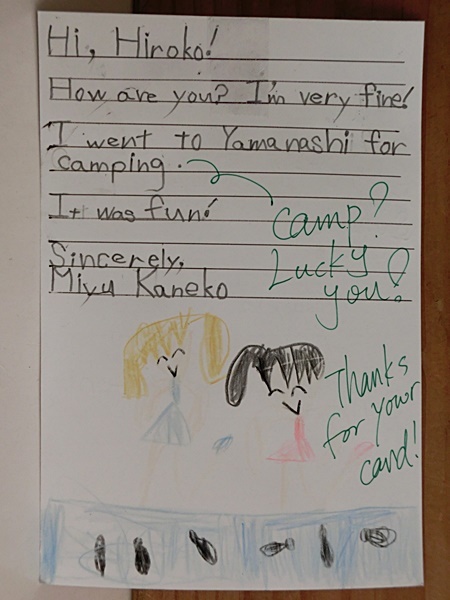 Hi, Hiroko!
How are you? I'm very fine!
I went to Yamanashi for
camping.
It was fun!
Sincerely,
Miyu Kaneko
camp?
Lucky
you!
Thanks
for your
card!